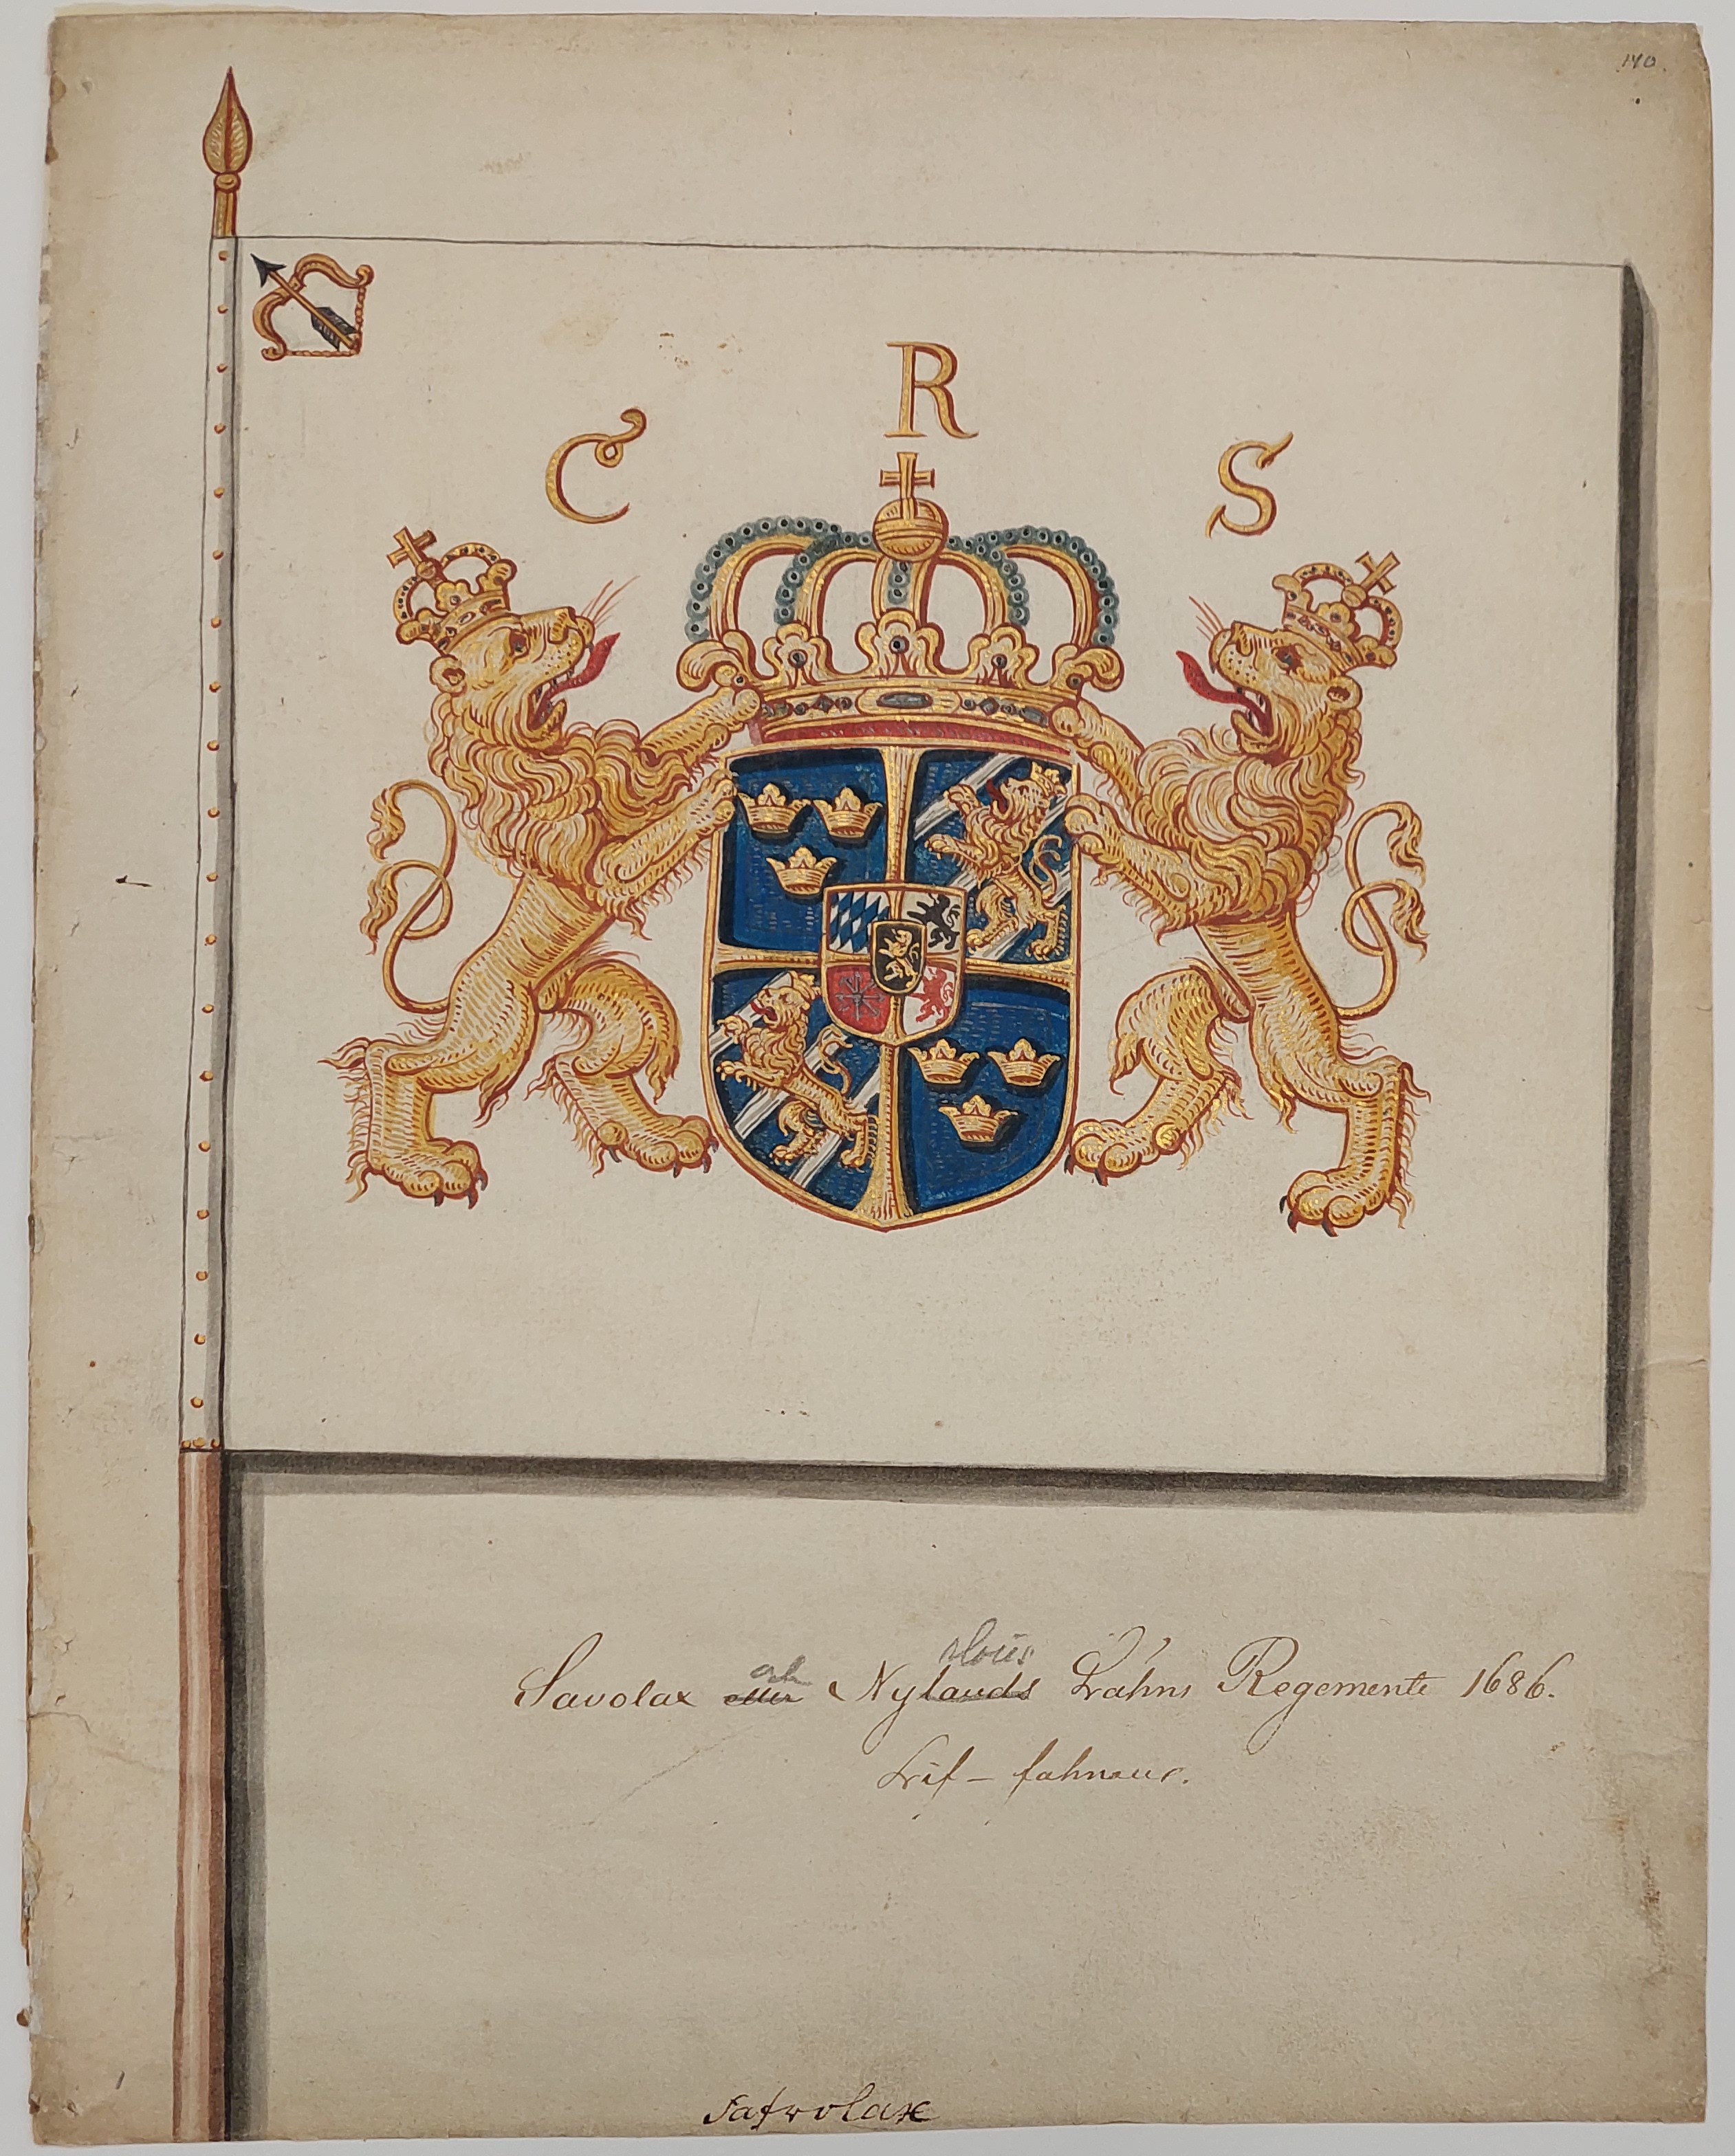 170.
C R S
och slotts
Savolax eller Nylands Lähns Regemente 1686.
Lif-fahnan.
Safwolax